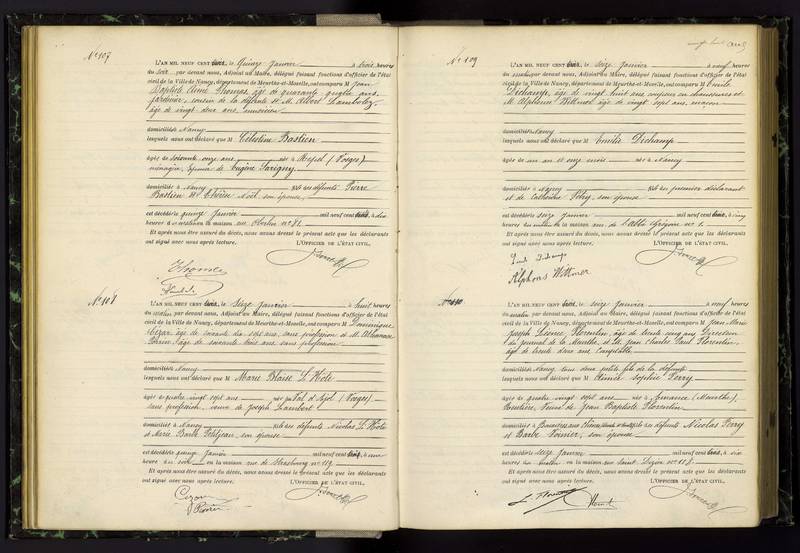 N° 107
L'AN MIL NEUF CENT trois, le Quinze Janvier à trois heures
du soir par devant nous, Adjoint au Maire, délégué faisant fonctions d'officier de l'état
civil de la Ville de Nancy, département de Meurthe-et-Moselle, ont comparu M Jean
Baptiste Aimé Thomas, âgé de quarante quatre ans,
jardinier, cousin de la défunte et M. Albert
âgé de vingt deux ans,
domiciliés à Nancy
lesquels nous ont déclaré que M Célestine Bastien
âgée de soixante onze ans née à (Vosges)
ménagère, épouse de Eugène Savigny
domiciliée à Nancy fille des défunts Pierre
Bastien et Thérèse Noël, son épouse,
est décédée quinze janvier mil neuf cent trois, à dix
heures en la maison rue Oberlin n° 81.
Et après nous être assuré du décès, nous avons dressé le présent acte que les déclarants
ont signé avec nous après lecture. L'OFFICIER DE L'ÉTAT CIVIL,
Thomas
N° 108
L'AN MIL NEUF CENT trois, le Seize Janvier à huit heures
du matin, par devant nous, Adjoint au Maire, délégué faisant fonctions d'officier de l'état
civil de la Ville de Nancy, département de Meurthe-et-Moselle, ont comparu M Dominique
Cezar, âgé de soixante dix sept ans, sans profession et M. Athanase
Perrin, âgé de soixante trois ans, sans profession
domiciliés à Nancy
lesquels nous ont déclaré que M Marie Blaise L'Hôte
âgée de quatre vingt sept ans née au Val d'Ajol (Vosges)
sans profession, veuve de Joseph Lambert
domiciliée à Nancy fille des défunts Nicolas L'Hôte
et Marie Barbe Petitjean, son épouse
est décédée quinze janvier mil neuf cent trois, à une
heure du soir en la maison rue de Strasbourg n° 119.
Et après nous être assuré du décès, nous avons dressé le présent acte que les déclarants
ont signé avec nous après lecture. L'OFFICIER DE L'ÉTAT CIVIL,
Cezar
Perrin
N° 109
L'AN MIL NEUF CENT trois, le Seize Janvier à neuf heures
du matin par devant nous, Adjoint au Maire, délégué faisant fonctions d'officier de l'état
civil de la Ville de Nancy, département de Meurthe-et-Moselle, ont comparu M Emile
Dichamp, âgé de vingt huit ans, coupeur en chaussures et
M. Alphonse Wittmer, âgé de vingt sept ans, maçon
domiciliés à Nancy
lesquels nous ont déclaré que M Emile Dichamp
âgé de un an et onze mois né à Nancy
domicilié à Nancy fils du premier déclarant
et de Catherine Pétry, son épouse
est décédé le seize janvier mil neuf cent trois, à cinq
heures du matin en la maison rue de l'Abbé Grégoire n° 1.
Et après nous être assuré du décès, nous avons dressé le présent acte que les déclarants
ont signé avec nous après lecture. L'OFFICIER DE L'ÉTAT CIVIL,
Alphons Wittmer
N° 110
L'AN MIL NEUF CENT trois, le Seize Janvier à neuf heures
du matin par devant nous, Adjoint au Maire, délégué faisant fonctions d'officier de l'état
civil de la Ville de Nancy, département de Meurthe-et-Moselle, ont comparu M Jean Marie
Joseph Florentin, âgé de trente cinq ans, Directeur
du journal de la Meurthe, et M. Jean Charles Paul Florentin,
âgé de trente deux ans, comptable
domiciliés à Nancy, tous deux petits fils de la défunte
lesquels nous ont déclaré que M Aimée Sophie Perry
âgée de quatre vingt sept ans née à Amance (Meurthe),
Rentière, Veuve de Jean Baptiste Florentin
domiciliée à fille des défunts Nicolas Perry
et Barbe Voinier, son épouse
est décédée seize janvier mil neuf cent trois, à six
heures du matin en la maison rue Saint Dizier n° 118.
Et après nous être assuré du décès, nous avons dressé le présent acte que les déclarants
ont signé avec nous après lecture. L'OFFICIER DE L'ÉTAT CIVIL,